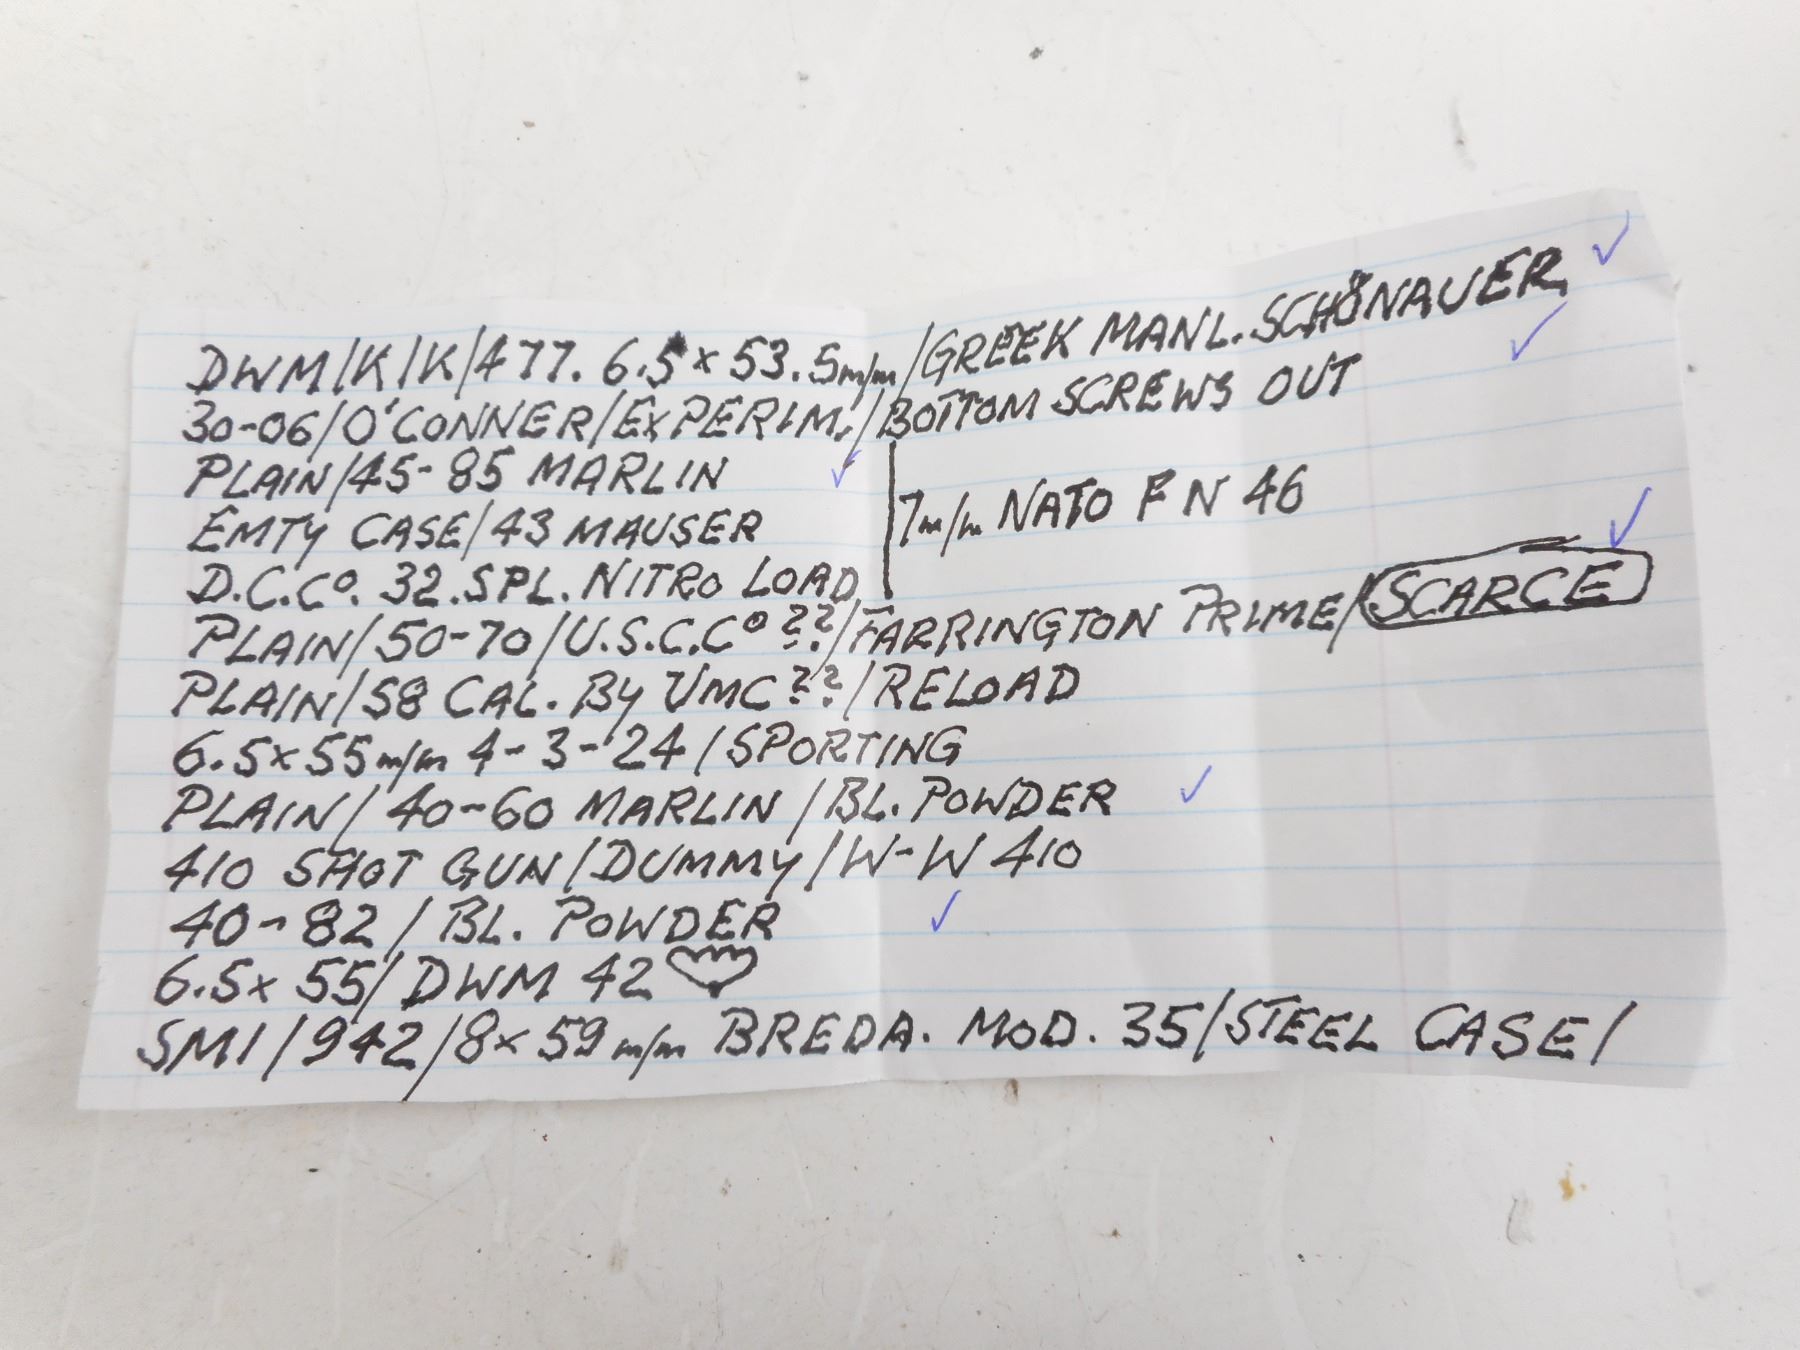 DWM/K/K/477. 6.5 x 53.5m/m/GREEK MANL. SCHÖNAUER
30-06/O'CONNER/EXPERIM./BOTTOM SCREWS OUT
PLAIN/45-85 MARLIN
EMTY CASE/43 MAUSER
7m/m NATO F N 46
D.C.Co. 32.SPL. NITRO LOAD
PLAIN/50-70/U.S.C.Co ??/FARRINGTON PRIME/SCARCE
PLAIN/58 CAL. By UMC ??/RELOAD
6.5x55m/m 4-3-24/SPORTING
PLAIN/40-60 MARLIN/BL. POWDER
410 SHOT GUN/DUMMY/W-W 410
40-82/BL. POWDER
6.5x 55/DWM 42
SMI/942/8x59 m/m BREDA. MOD. 35/STEEL CASE/